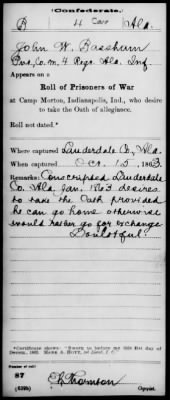 (Confederate.)
B | 4 Cav | Ala.
John W. Basshum
Pvt, Co. M, 4 Regt. Ala. Inf.
Appears on a
Roll of Prisoners of War
at Camp Morton, Indianapolis, Ind., who desire
to take the Oath of allegiance.
Roll not dated.*
Where captured Lauderdale Co., Ala.
When captured Oct. 15, 1863
Remarks: Conscripted Lauderdale
Co. Ala. Jan. 1863 desires
to take the Oath provided
he can go home otherwise
would rather go for exchange
Doubtful!
*Certificate shows: "Sworn to before me this 31st day of
Number of roll:
87
(639b)
Thomson
Copyist.